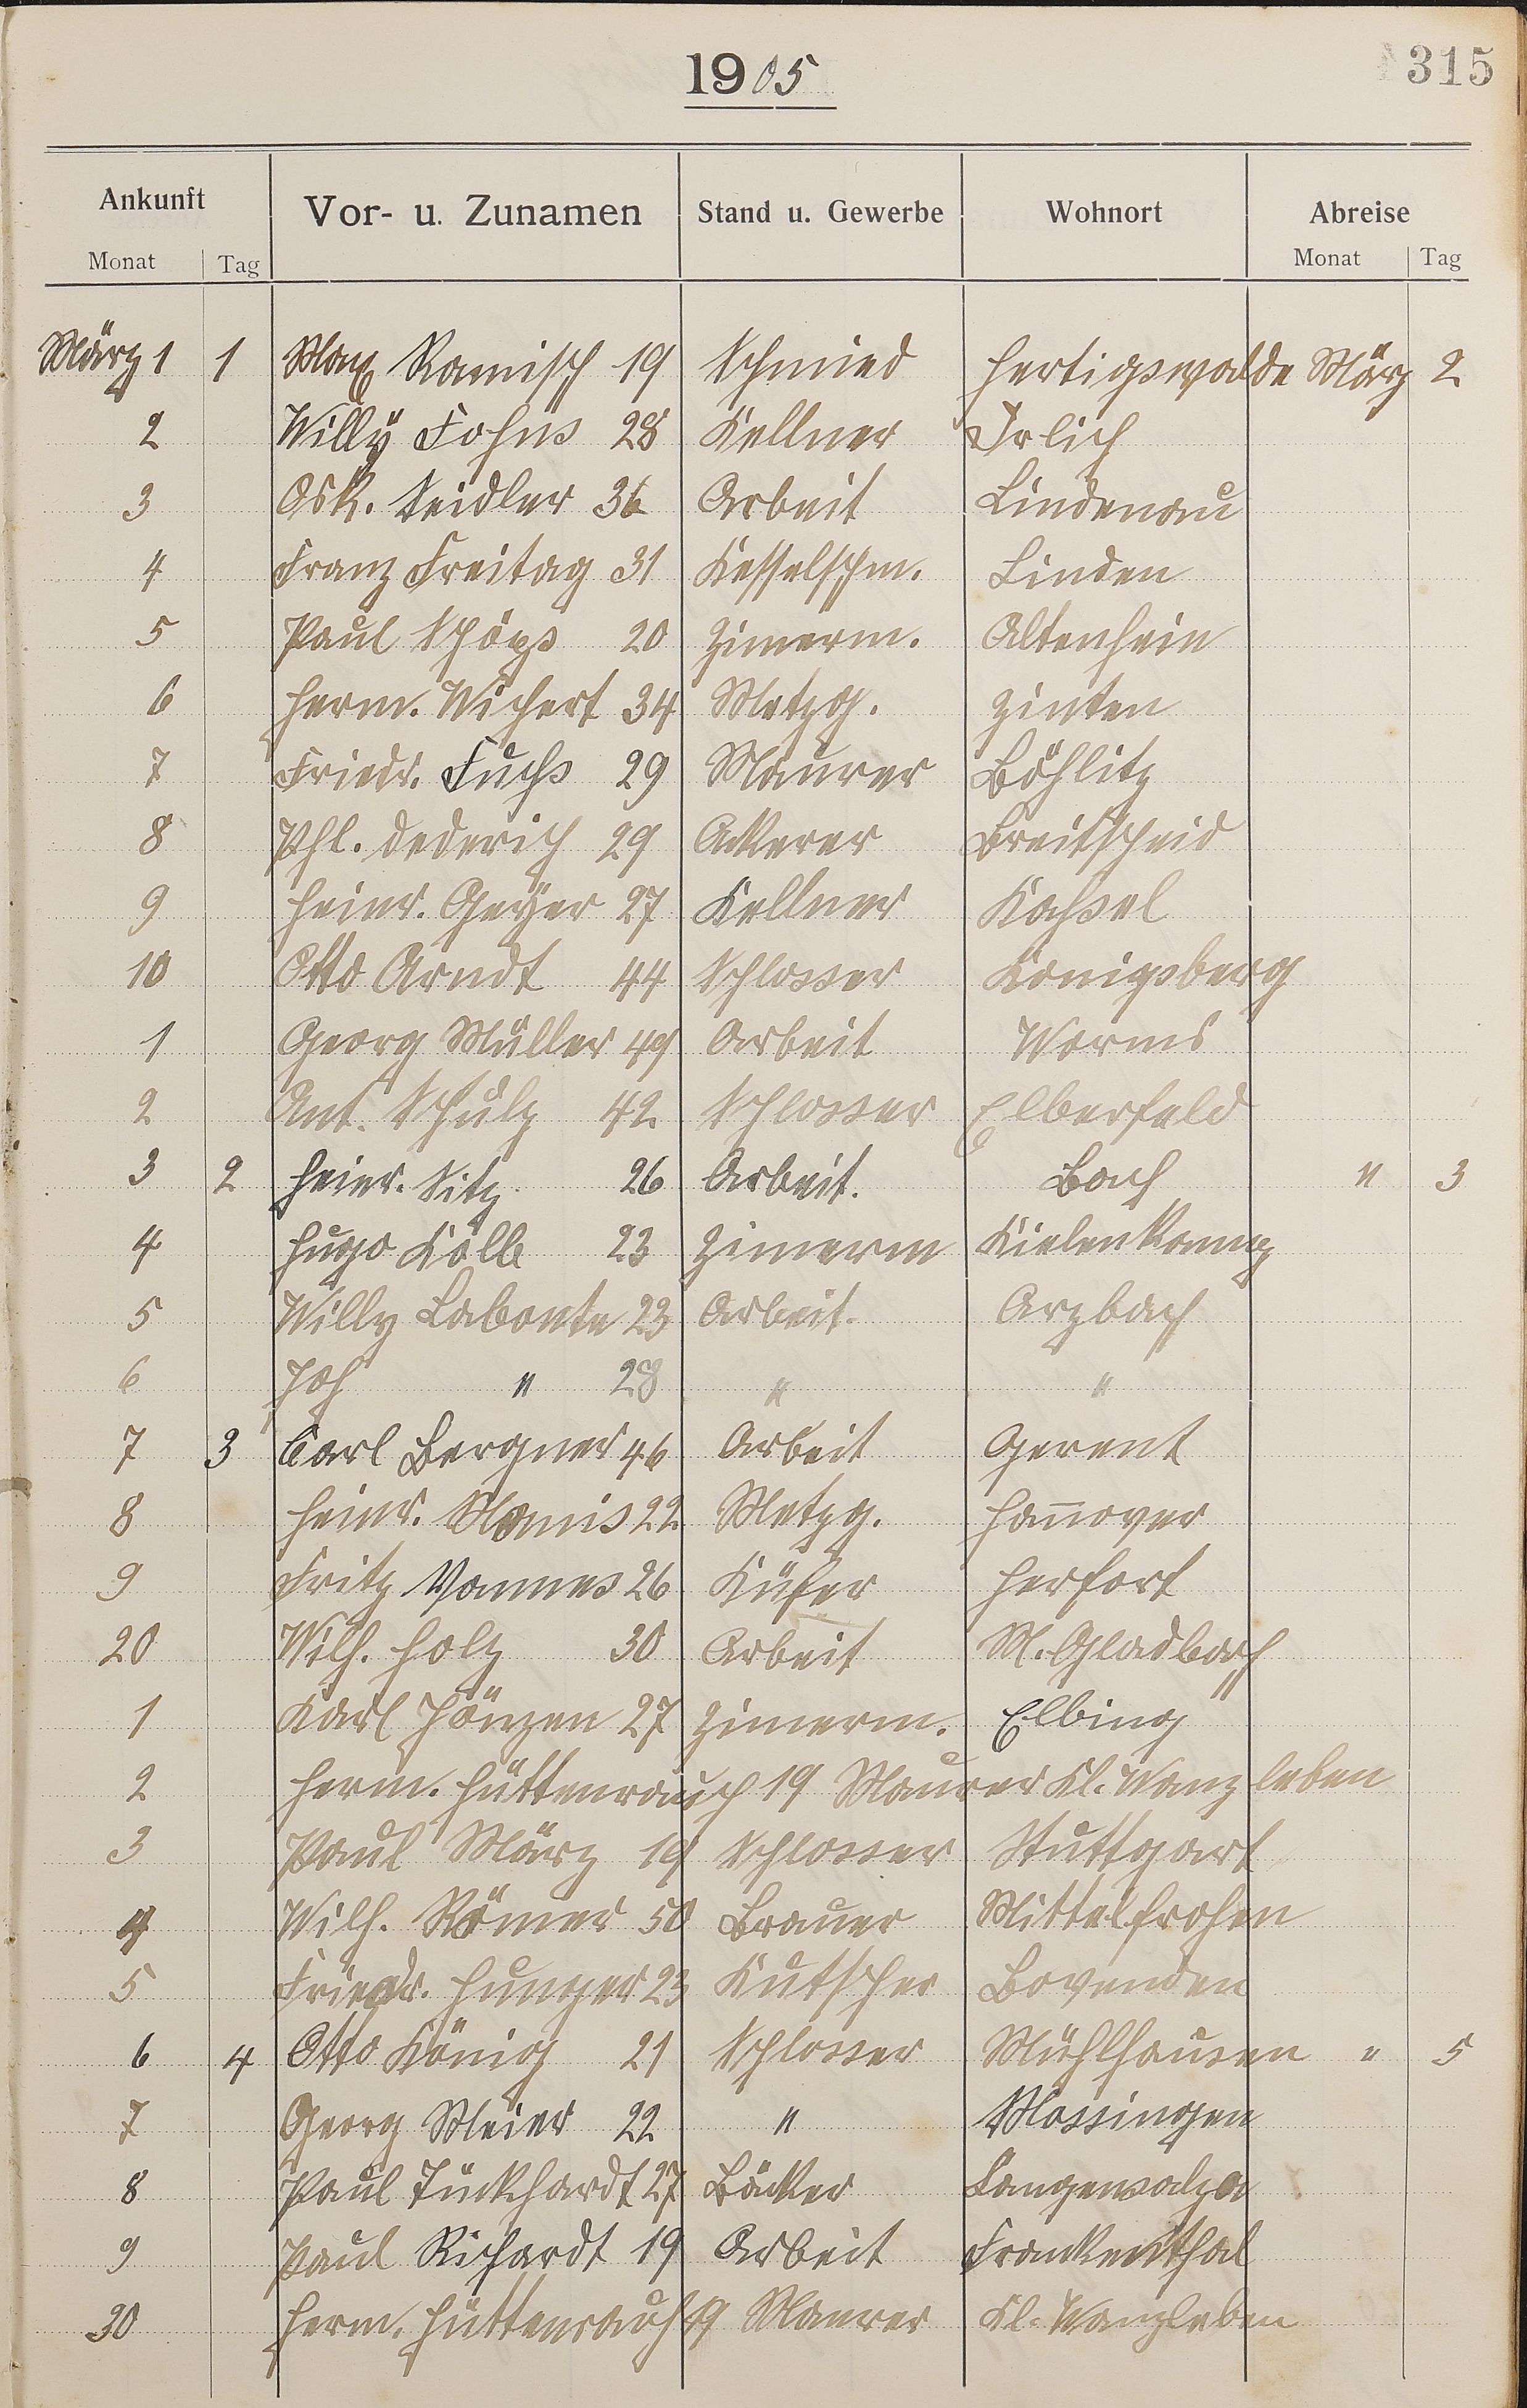 1905
315
Ankunft Vor- u. Zunamen Stand u. Gewerbe Wohnort Abreise
Monat Tag Monat Tag
März 1 1 Max Ramisch 19 Schmied Hertigswalde März 2
2 Willÿ Johns 28 Kellner Irlich
3 Osk. Seidler 36 Arbeit Lindenau
4 Franz Freitag 31 Kesselschm. Linden
5 Paul Schöps 20 Zimerm. Altenhein
6 Herm. Wichert 34 Metzg. Zinten
7 Friedr. Fuchs 29 Maurer Böhlitz
8 Phl. Dederich 29 Ackerer Breitscheid
9 Heinr. Geÿer 27 Kellner Kassel
10 Otto Arndt 44 Schlosser Konigsberg
1 Georg Müller 49 Arbeit Worms
2 Ant. Schulz 42 Schlosser Elberfeld
3 2 Heinr. Sitz 26 Arbeit. Bach " 3
4 Hugo Kölb 23 Zimerm
5 Willy Labonte 23 Arbeit. Arzbach
6 Joh " 28 " "
7 3 Carl Bergner 46 Arbeit Gerent
8 Heinr. 22 Metzg. Hannover
9 Fritz Vannes 26 Küfer Herfort
20 Wilh. Holz 30 Arbeit M. Gladbach
1 Karl Jänzen 27 Zimerm. Elbing
2 Herm. Hüttenrauch 19 Maurer Kl. Wanzleben
3 Paul März 19 Schlosser Stuttgart
4 Wilh. Römer 50 Brauer Mittelfrohen
5 Friedr. Hunger 23 Kutscher Bovenden
6 4 Otto König 21 Schlosser Mühlhausen " 5
7 Georg Meier 22 " Mössingen
8 Paul Tückhardt 27 Bäcker Langensalza
9 Paul Richardt 19 Arbeit Frankenthal
30 Herm. Hüttenrauch 19 Maurer Kl. Wanzleben